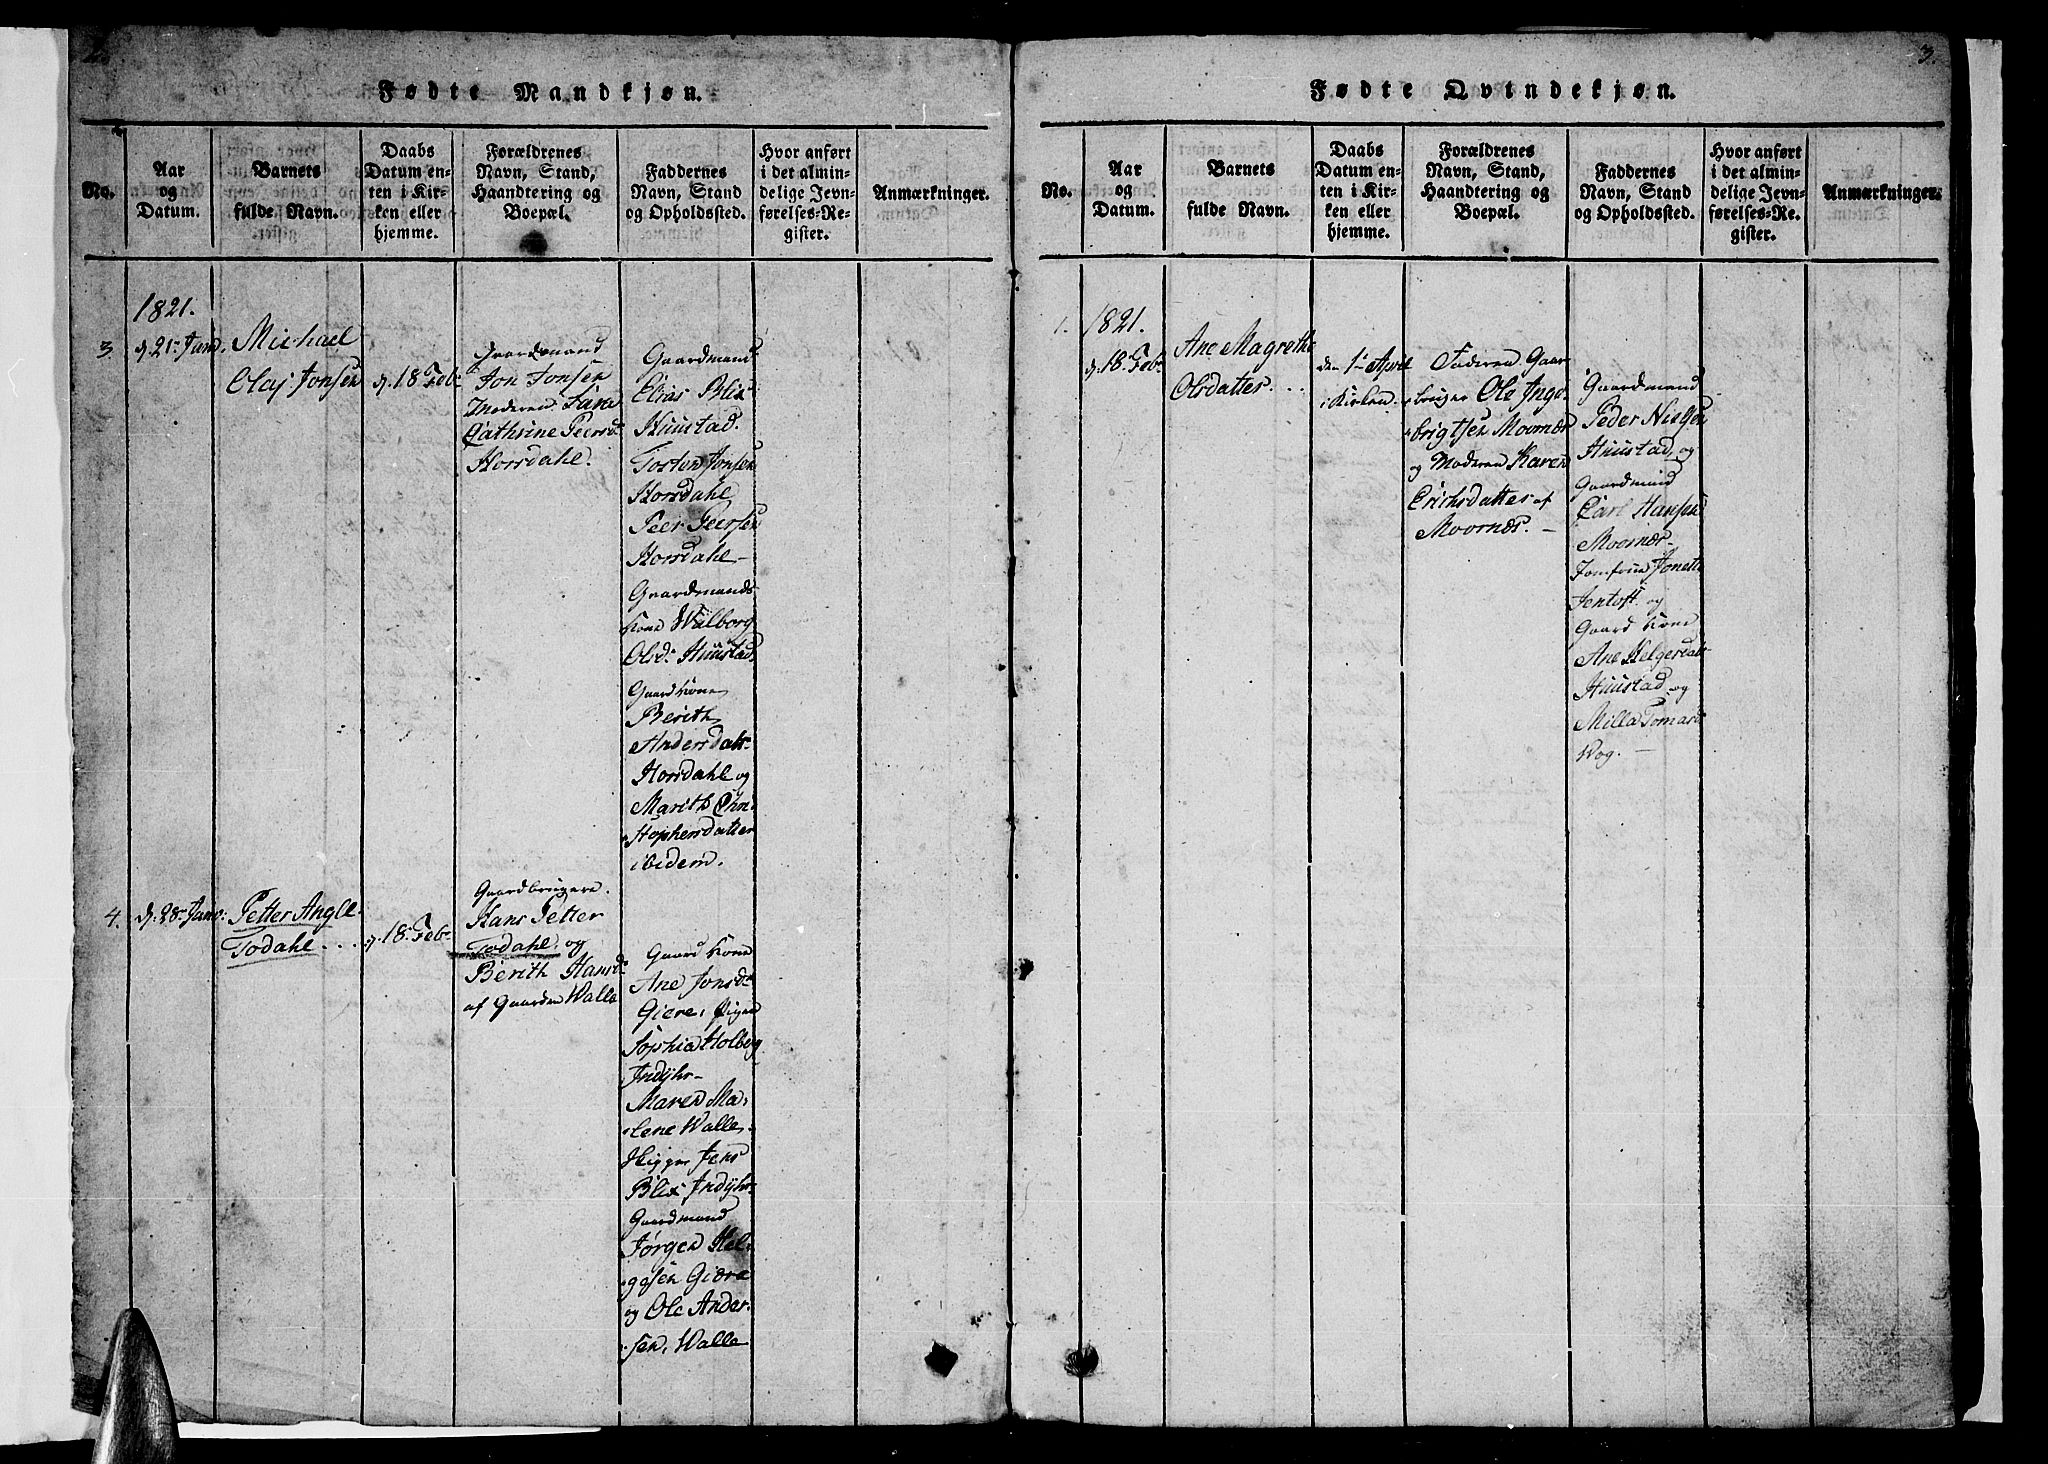 Fødte Mandkjøn.
No.
Aar
og
Datum.
Barnets
fulde Navn.
Daabs
Datum en-
ten i Kir-
ken eller
hjemme.
Forældrenes
Navn, Stand,
Haandtering og
Boepæl.
Faddernes
Navn, Stand
og Opholdssted.
Hvor anført
i det almin-
delige Jevn-
førelses-Re-
gister.
Anmærkninger.
1821.
3
d. 21 Janu
Michael
Olaj Jonsen
d. 18 Feb
Gaardmand
Jon Jonsen
Moderen
Cathrine Peersd
Horsdahl.
Gaardmand
Elias Blix
Huustad.
Torsten Jonsen
Horsdahl
Peer Peersen
Horsdahl
Gaardmands
Kone Wålborg
Olsd. Huustad
Gaardkone
Berith
Andersdatr
Horsdahl og
Marith Chri
stophersdatter
ibidem.
4.
d. 28 Janv:
Petter Angel
Todahl
d. 18 Feb
Gaardbrugere
Hans Petter
Todahl og
Berith Hansd
af Gaarden Walle
Gaard Kone
Ane Jonsd
Giære, Pigen
Sophia Holberg
Indyhr
Maren Ma
lene Walle
Jens
Blix Indyhr
Gaardmand
Jørgen Hel
gesen Giære
og Ole Ander
sen, Walle
3.
Fødte Qvindekjøn.
No.
Aar
og
Datum.
Barnets
fulde Navn.
Daabs
Datum en-
ten i Kir-
ken eller
hjemme.
Forældrenes
Navn, Stand,
Haandtering og
Boepæl.
Faddernes
Navn, Stand
og Opholdssted.
Hvor anført
i det almin-
delige Jevn-
førelses-Re-
gister.
Anmærkninger.
1.
1821.
d. 18 Feb
Ane Magrethe
Olsdatter.
den 1 April
i Kirken
Faderen Gaar
bruger Ole Inge
brigtsen Moornær
og Moderen Karen
Erichsdatter af
Moornær.
Gaardmand
Peder Nielsen
Huustad, og
Gaardmand
Carl Hansen
Moornær
Jomfrue Jonette
Jentoft og
Gaard Kone
Ane Helgersdatr
Huustad og
Milla Tomasd
Wog.